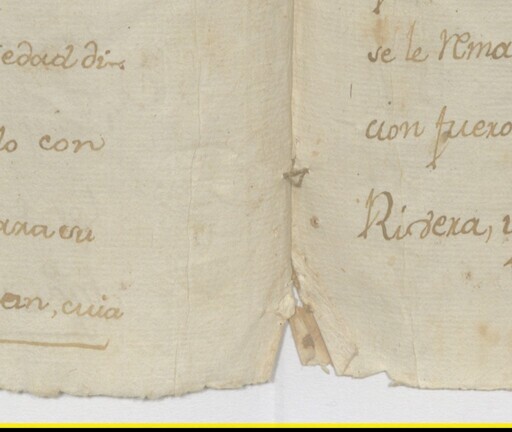 edad
do con
an, cuia
se le rema
cion fuero
Rivera,